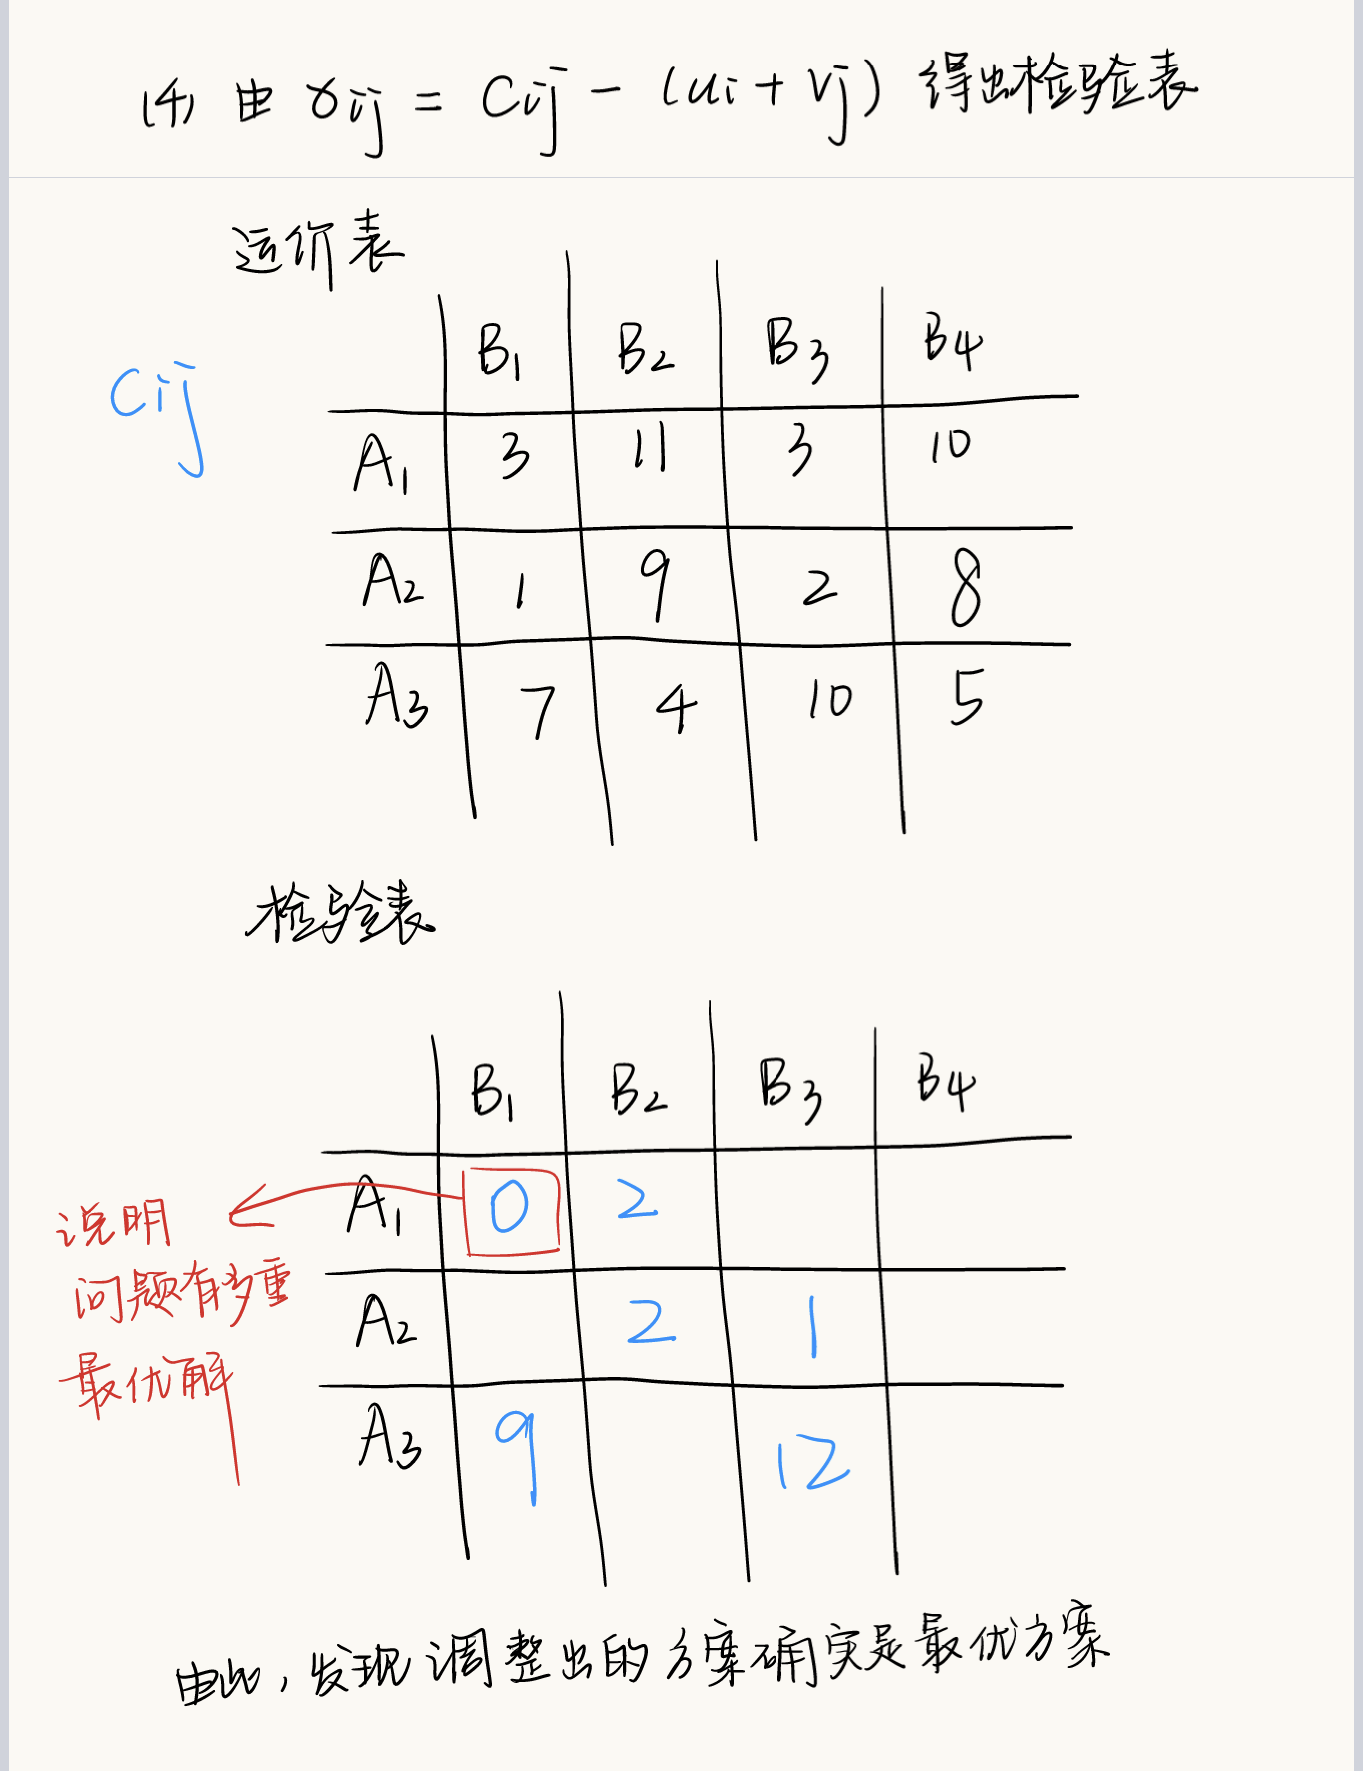 (4) 由 γij = Cij - (ui + vj) 得出检验表
运价表
Cij
B1 B2 B3 B4
A1 3 11 3 10
A2 1 9 2 8
A3 7 4 10 5
检验表
B1 B2 B3 B4
A1 0 2
A2 2 1
A3 9 12
说明
问题有多重
最优解
由此, 发现调整出的方案确实是最优方案